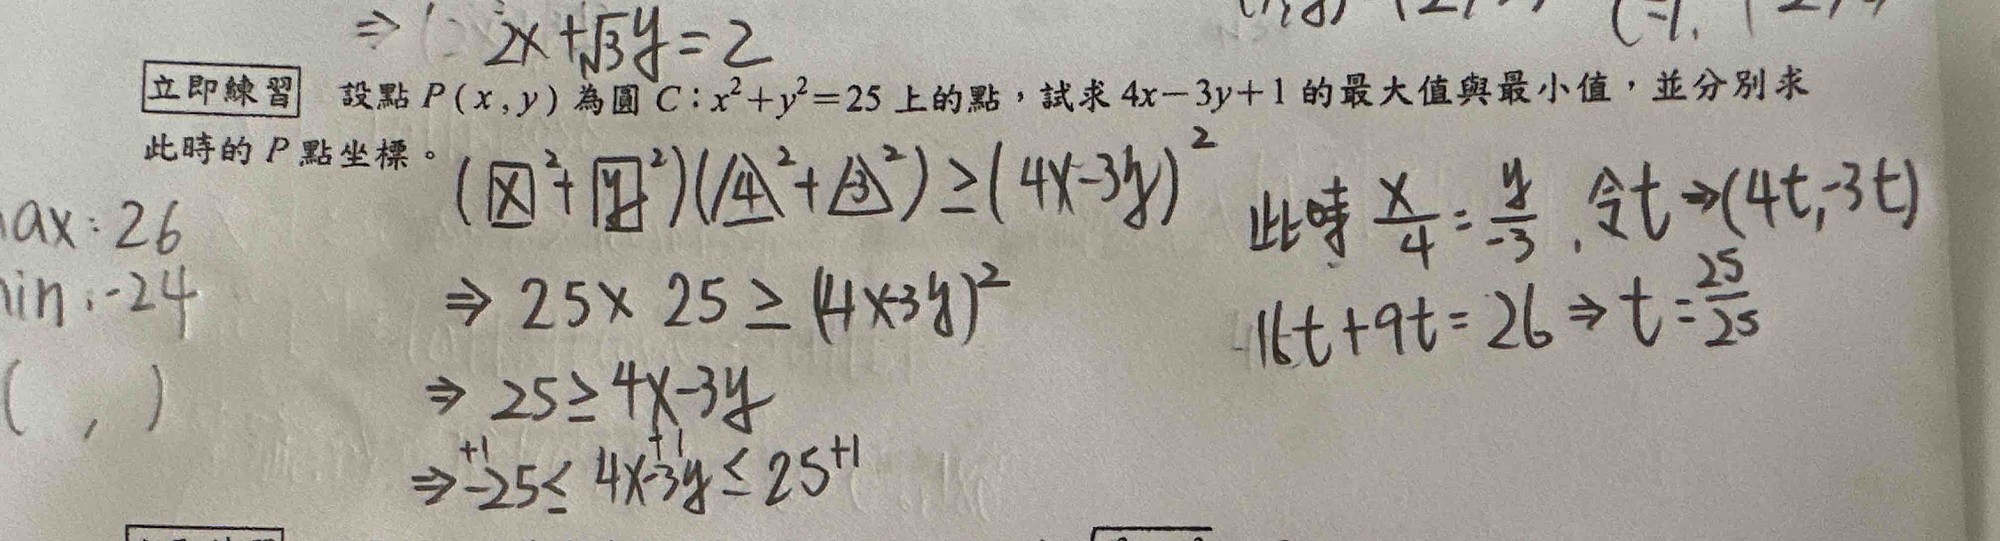 ⇒ 2x+√3y=2
立即練習 設點 P(x,y) 為圓 C：x²+y²=25 上的點，試求 4x−3y+1 的最大值與最小值，並分別求
此時的 P 點坐標。
(x²+y²)(4²+-3²)≥(4x-3y)²
⇒ 25×25≥(4x-3y)²
⇒ 25≥4x-3y
⇒ +1 -25≤4x-3y+1≤25+1
ax:26
in:-24
( , )
此時 x/4=y/-3，令t⇒(4t,-3t)
16t+9t=26⇒t=25/25